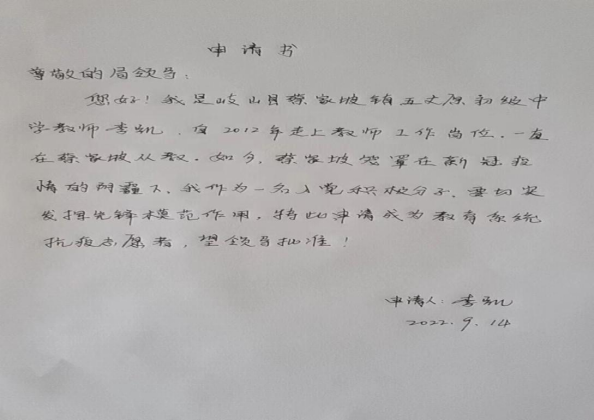 申请书
尊敬的局领导:
您好!我是岐山县蔡家坡镇五丈原初级中
学教师李凯,自2012年走上教师工作岗位,一直
在蔡家坡从教。如今,蔡家坡笼罩在新冠疫
情的阴霾下,我作为一名入党积极分子,要切实
发挥先锋模范作用,特此申请成为教育系统
抗疫志愿者,望领导批准!
申请人:李凯
2022.9.14